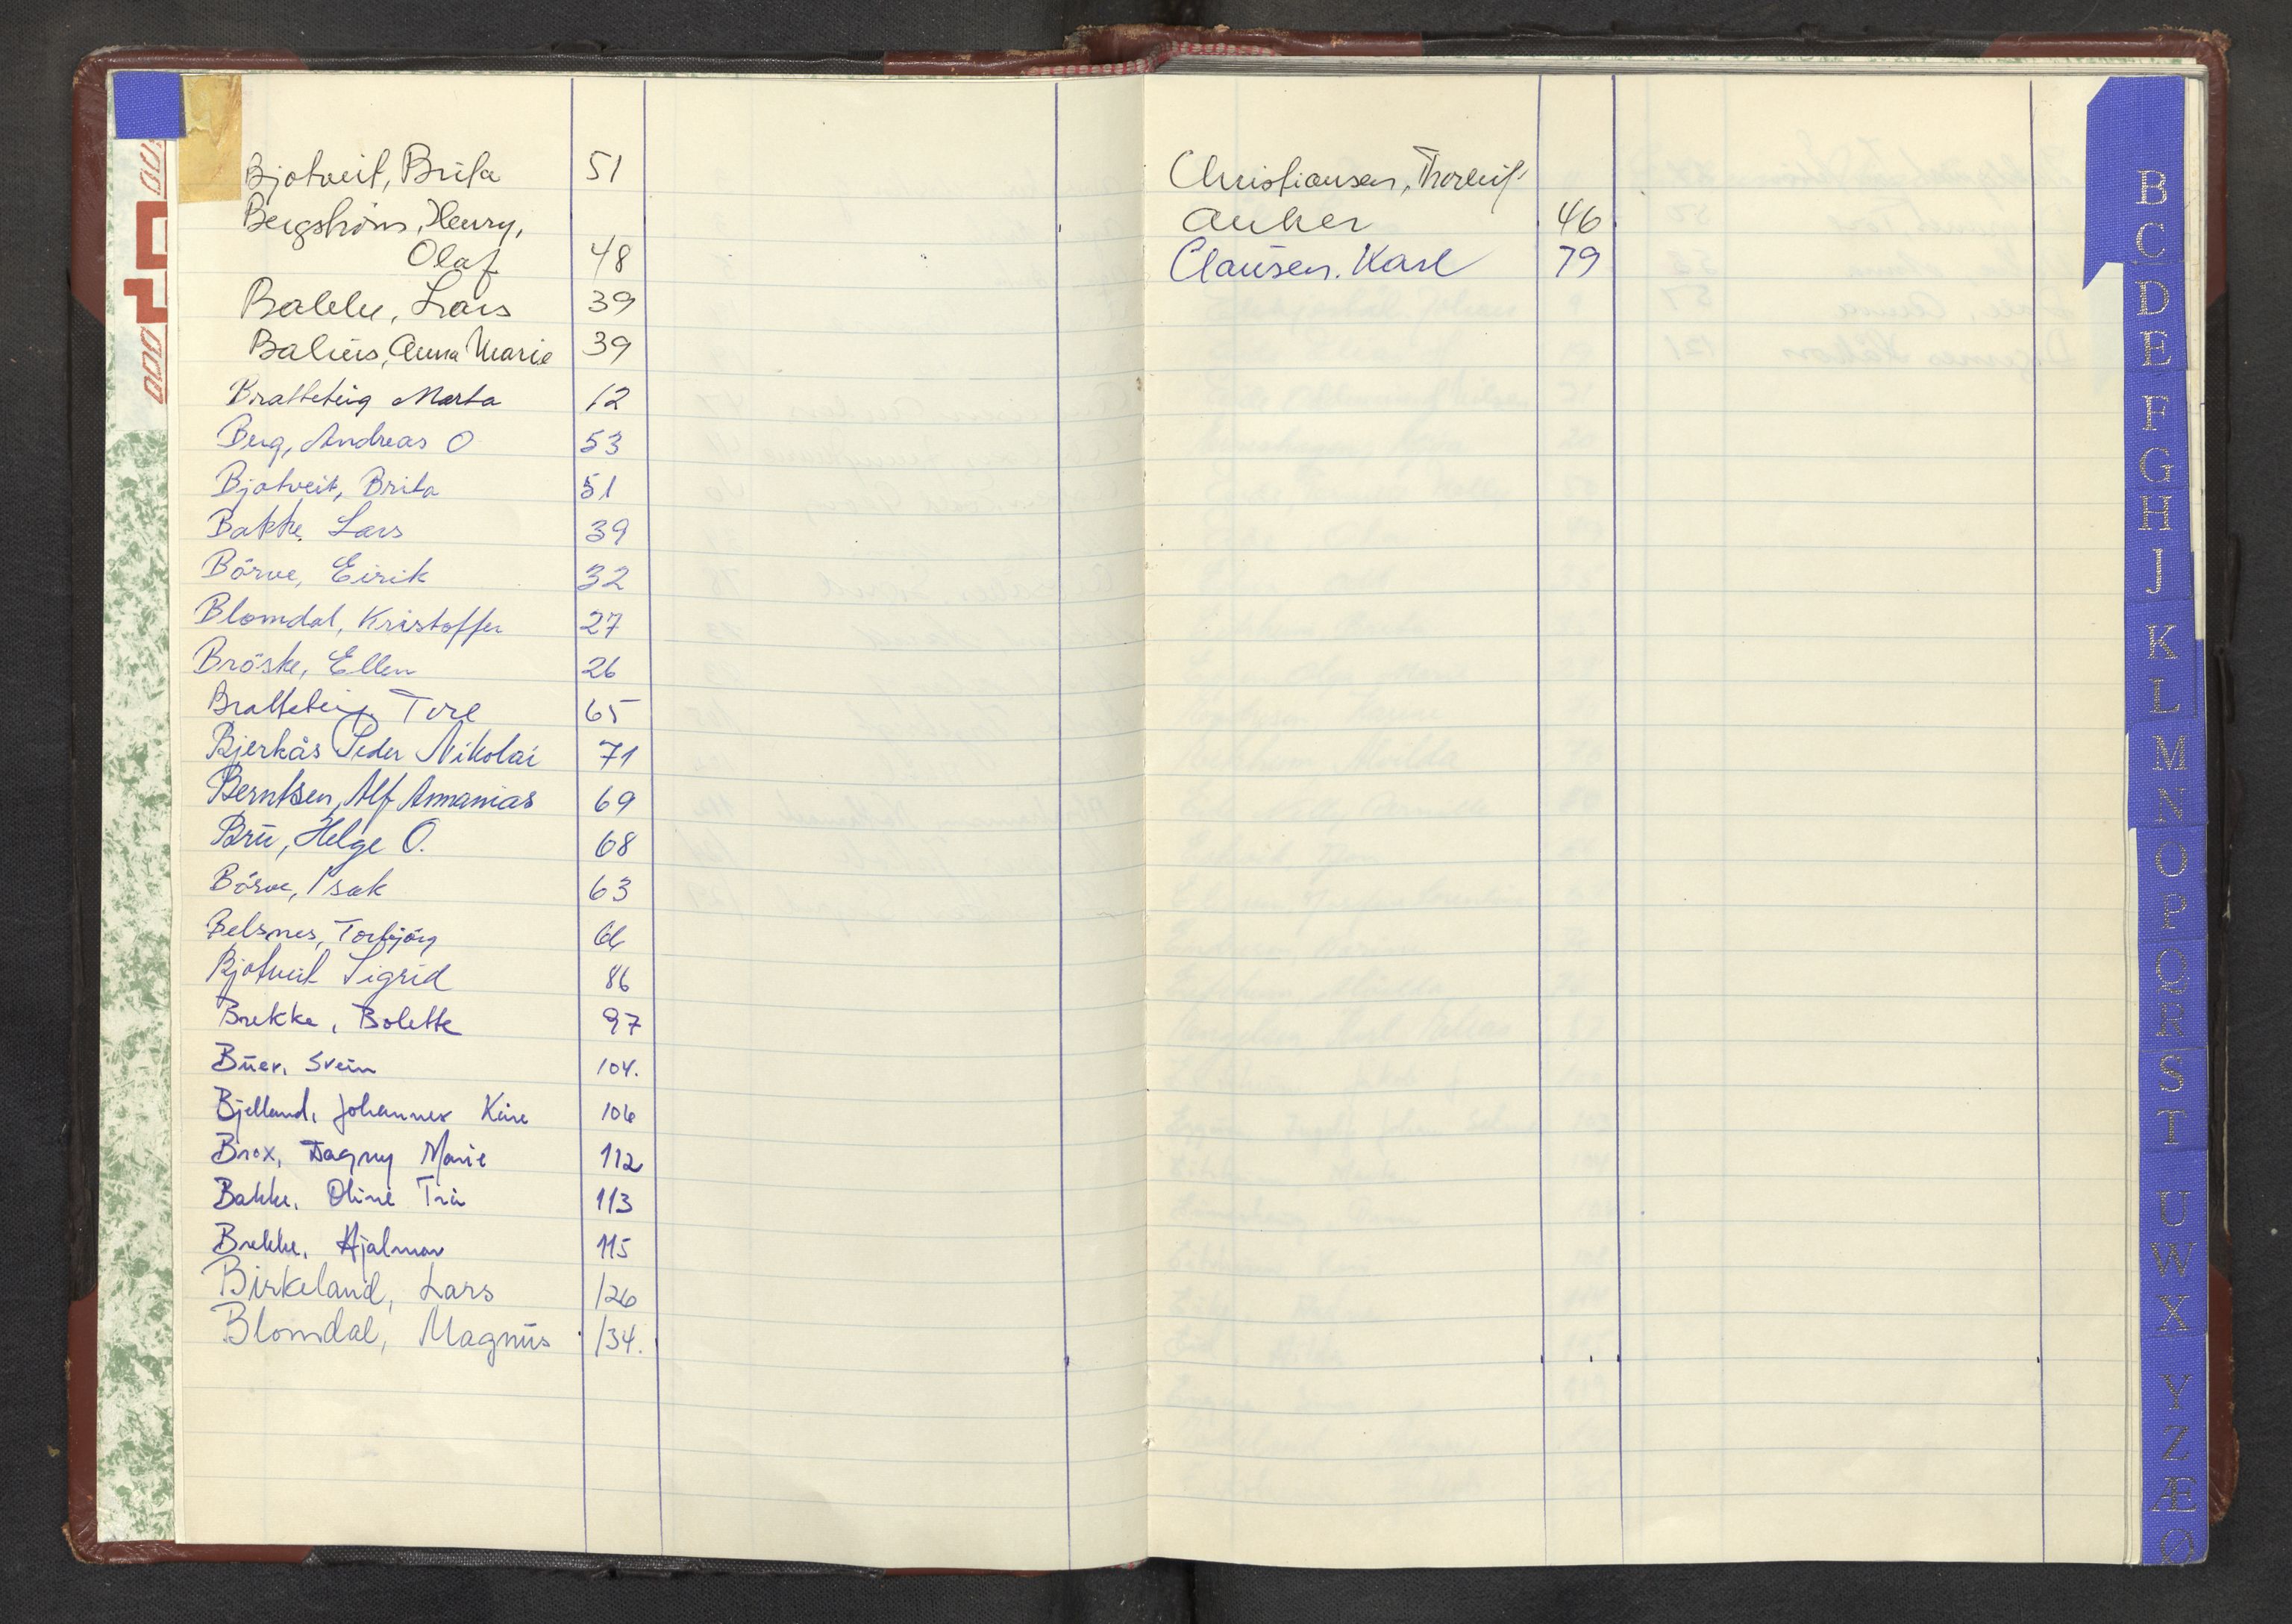 Bjotveit, Brita 51
Bergström, Henry,
Olaf 48
Bakke, Lars 39
Balius, Anna Marie 39
Bratteteig Marta 12
Berg, Andreas O 53
Bjotveit, Brita 51
Bakke, Lars 39
Börve, Eirik 32
Blomdal, Kristoffer 27
Bröske, Ellen 26
Bratteteig, Tore 65
Bjerkås Peder Nikolai 71
Berntsen, Alf Annanias 69
Brü, Helge O. 68
Börve, Isak 63
Belsnes, Torbjörg 66
Bjotveit Sigrid 86
Brekke, Bolette 97
Büer, Svein 104.
Bjelland, Johannes 106
Brox, Dagny Marie 112
Bakke, Oline 113
Brekke, Hjalmar 115
Birkeland, Lars 126
Blomdal, Magnüs 134.
Christiansen, Thorleif
Anker 46
Claüsen, Karl 79
B
C
D
E
F
G
H
J
K
L
M
N
O
P
Q
R
S
T
U
W
X
Y
Z
Æ
Ø